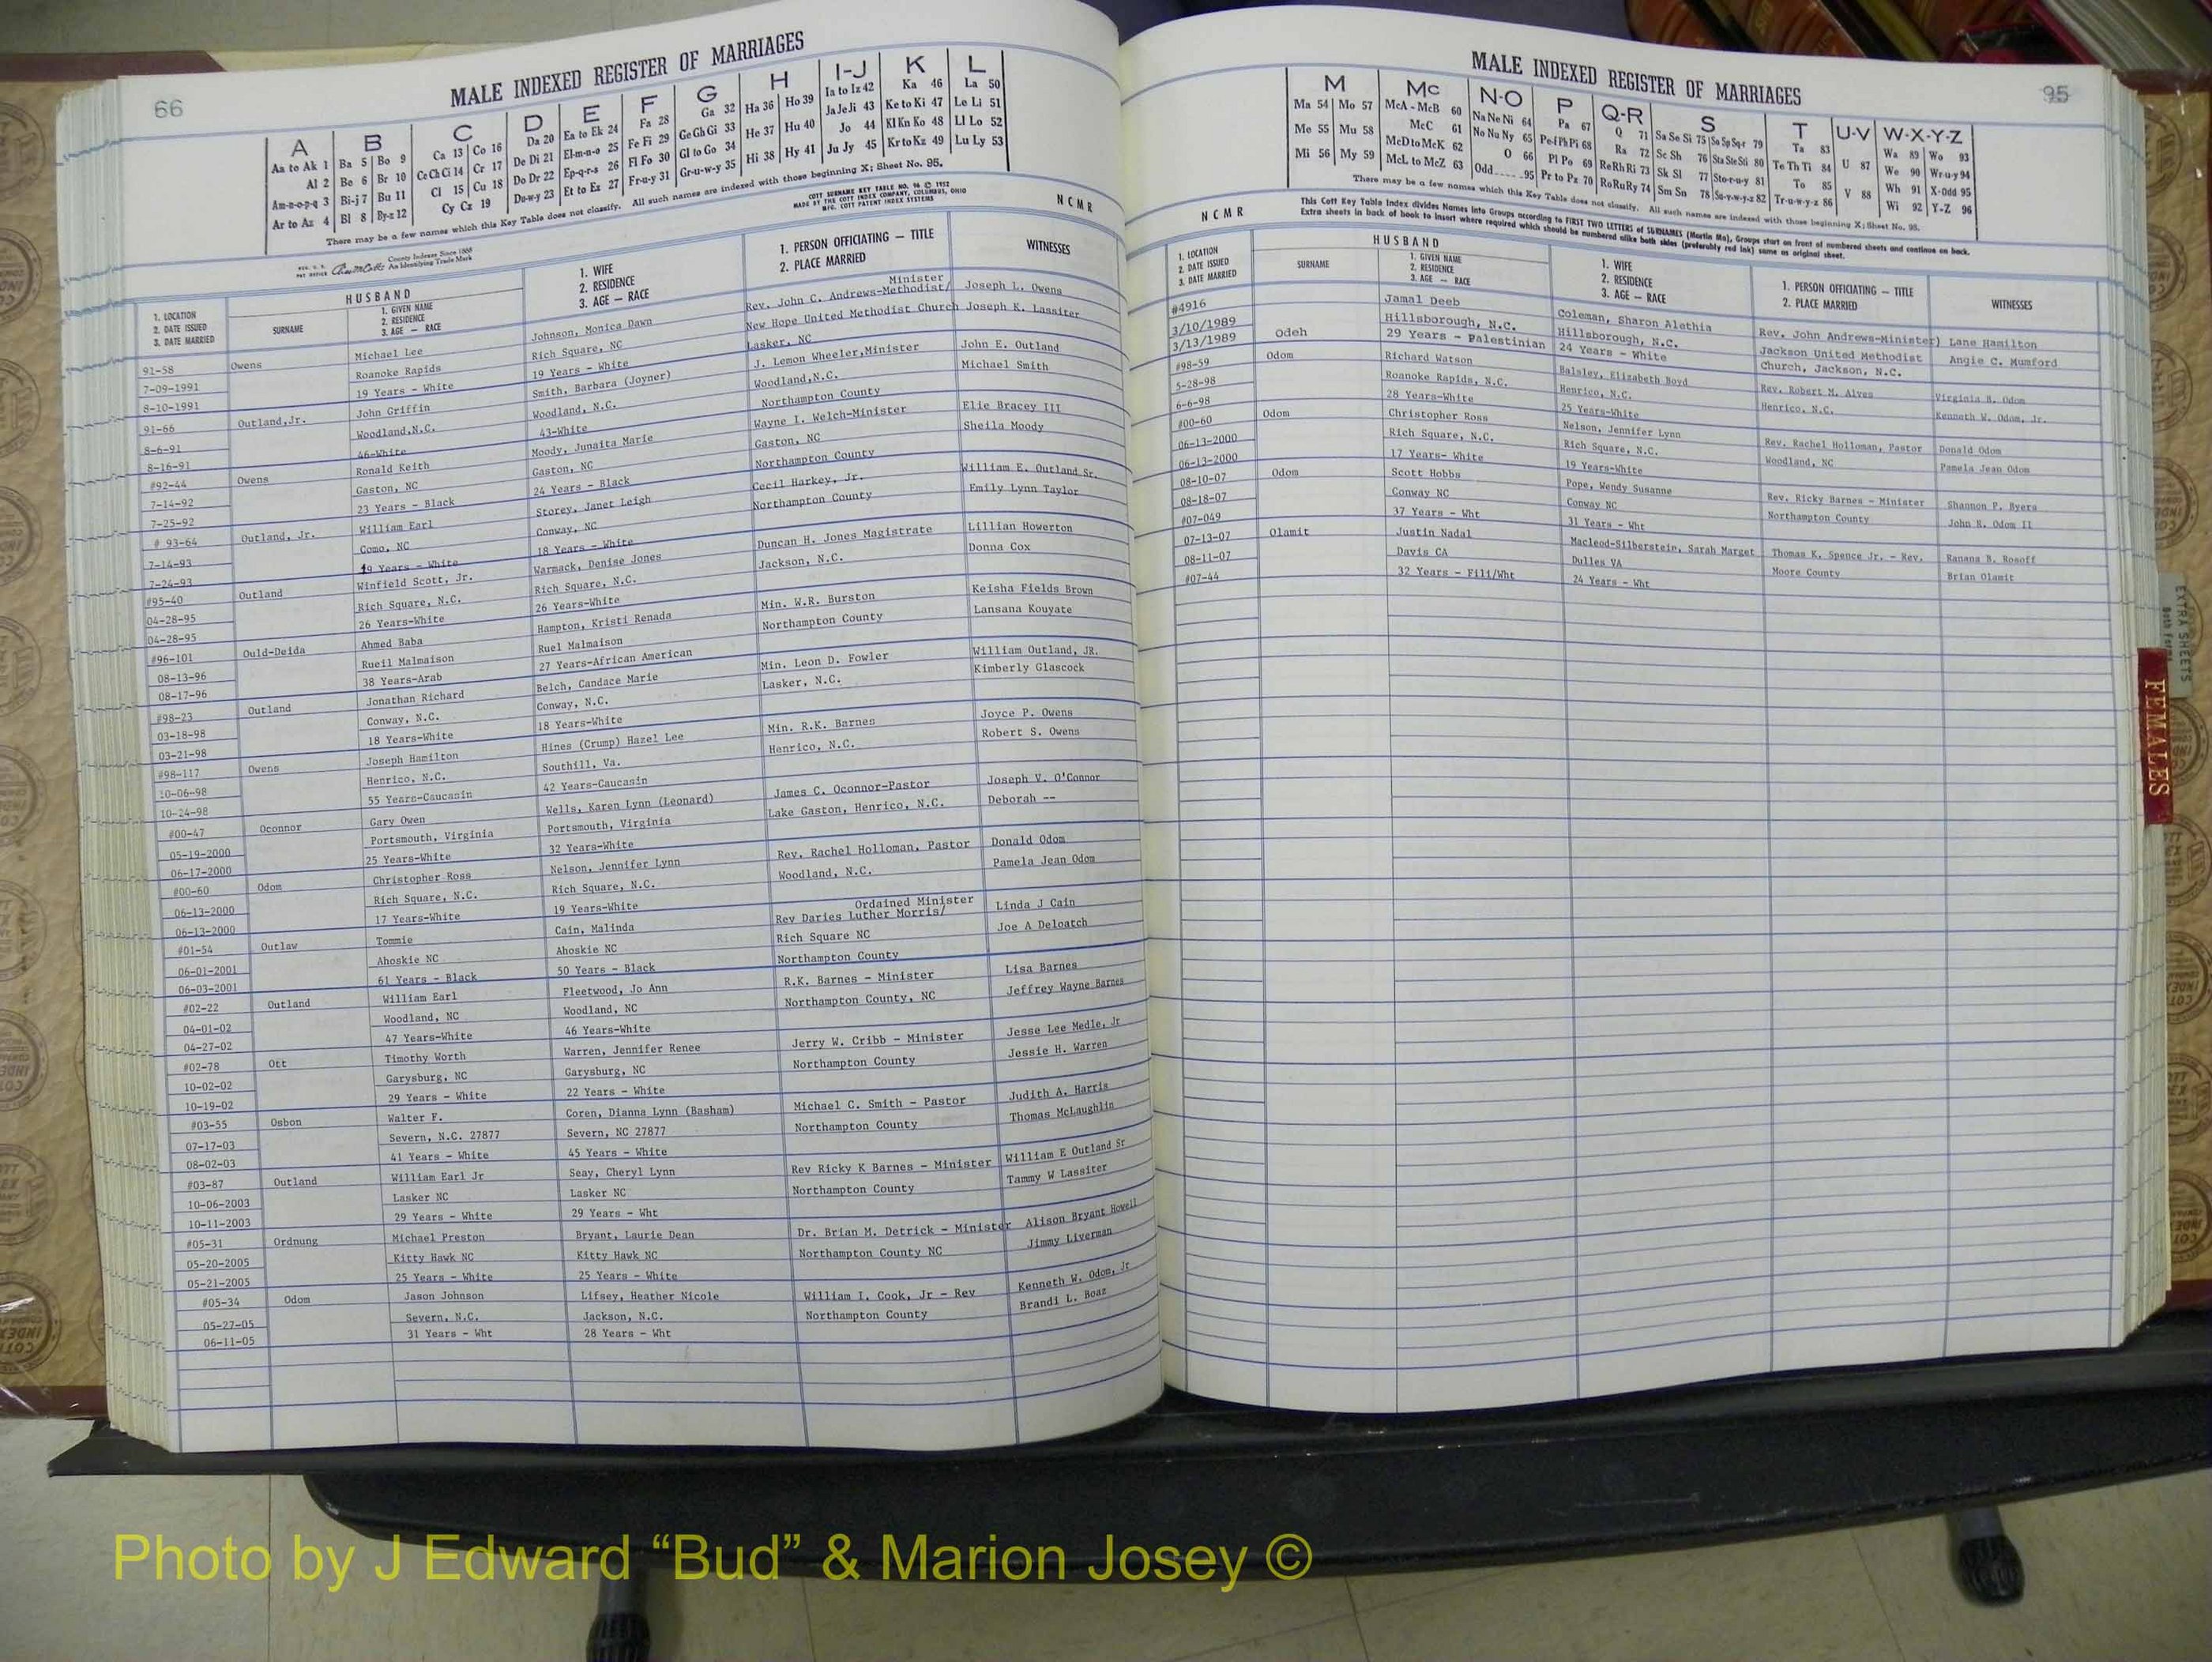 66
MALE INDEXED REGISTER OF MARRIAGES
A B C D E F G H I-J K L
Aa to Ak 1 Ba 5 Bo 9 Ca 13 Co 16 Da 20 Ea to Ek 24 Fa 28 Ga 32 Ha 36 Ho 39 Ia to Iz 42 Ka 46 La 50
Al 2 Be 6 Br 10 Ce Ch Ci 14 Cr 17 De Di 21 El-m-n-o 25 Fe Fi 29 Ge Gh Gi 33 He 37 Hu 40 Ja Je Ji 43 Ke to Ki 47 Le Li 51
Am-n-o-p-q 3 Bi-j 7 Bu 11 Cl 15 Cu 18 Do Dr 22 Ep-q-r-s 26 Fl Fo 30 Gl to Go 34 Hi 38 Hy 41 Jo 44 Kl Kn Ko 48 Ll Lo 52
Ar to Az 4 Bl 8 By-z 12 Cy Cz 19 Du-w-y 23 Et to Ez 27 Fr-u-y 31 Gr-u-w-y 35 Ju Jy 45 Kr to Kz 49 Lu Ly 53
There may be a few names which this Key Table does not classify. All such names are indexed with those beginning X; Sheet No. 95.
County Indexes Since 1888
An Identifying Trade Mark
COTT SURNAME KEY TABLE NO. 96 © 1952
MADE BY THE COTT INDEX COMPANY, COLUMBUS, OHIO
MFG. COTT PATENT INDEX SYSTEMS
N C M R
1. LOCATION
2. DATE ISSUED
3. DATE MARRIED
HUSBAND
SURNAME
1. GIVEN NAME
2. RESIDENCE
3. AGE — RACE
1. WIFE
2. RESIDENCE
3. AGE — RACE
1. PERSON OFFICIATING — TITLE
2. PLACE MARRIED
WITNESSES
91-58 Owens Michael Lee Johnson, Monica Dawn Rev. John C. Andrews-Methodist/ Minister Joseph L. Owens
7-09-1991 Roanoke Rapids Rich Square, NC New Hope United Methodist Church Joseph K. Lassiter
8-10-1991 19 Years - White 19 Years - White Lasker, NC
91-66 Outland,Jr. John Griffin Smith, Barbara (Joyner) J. Lemon Wheeler,Minister John E. Outland
8-6-91 Woodland,N.C. Woodland, N.C. Woodland,N.C. Michael Smith
8-16-91 46-White 43-White Northampton County
#92-44 Owens Ronald Keith Moody, Junaita Marie Wayne I. Welch-Minister Elie Bracey III
7-14-92 Gaston, NC Gaston, NC Gaston, NC Sheila Moody
7-25-92 23 Years - Black 24 Years - Black Northampton County
# 93-64 Outland, Jr. William Earl Storey, Janet Leigh Cecil Harkey, Jr. William E. Outland Sr.
7-14-93 Como, NC Conway, NC Northampton County Emily Lynn Taylor
7-24-93 19 Years - White 18 Years - White
#95-40 Outland Winfield Scott, Jr. Warmack, Denise Jones Duncan H. Jones Magistrate Lillian Howerton
04-28-95 Rich Square, N.C. Rich Square, N.C. Jackson, N.C. Donna Cox
04-28-95 26 Years-White 26 Years-White
#96-101 Ould-Deida Ahmed Baba Hampton, Kristi Renada Min. W.R. Burston Keisha Fields Brown
08-13-96 Rueil Malmaison Ruel Malmaison Northampton County Lansana Kouyate
08-17-96 38 Years-Arab 27 Years-African American
#98-23 Outland Jonathan Richard Belch, Candace Marie Min. Leon D. Fowler William Outland, JR.
03-18-98 Conway, N.C. Conway, N.C. Lasker, N.C. Kimberly Glascock
03-21-98 18 Years-White 18 Years-White
#98-117 Owens Joseph Hamilton Hines (Crump) Hazel Lee Min. R.K. Barnes Joyce P. Owens
10-06-98 Henrico, N.C. Southill, Va. Henrico, N.C. Robert S. Owens
10-24-98 55 Years-Caucasin 42 Years-Caucasin
#00-47 Oconnor Gary Owen Wells, Karen Lynn (Leonard) James C. Oconnor-Pastor Joseph V. O'Connor
05-19-2000 Portsmouth, Virginia Portsmouth, Virginia Lake Gaston, Henrico, N.C. Deborah --
06-17-2000 25 Years-White 32 Years-White
#00-60 Odom Christopher Ross Nelson, Jennifer Lynn Rev. Rachel Holloman, Pastor Donald Odom
06-13-2000 Rich Square, N.C. Rich Square, N.C. Woodland, N.C. Pamela Jean Odom
06-13-2000 17 Years-White 19 Years-White
#01-54 Outlaw Tommie Cain, Malinda Rev Daries Luther Morris/ Ordained Minister Linda J Cain
06-01-2001 Ahoskie NC Ahoskie NC Rich Square NC Joe A Deloatch
06-03-2001 61 Years - Black 50 Years - Black Northampton County
#02-22 Outland William Earl Fleetwood, Jo Ann R.K. Barnes - Minister Lisa Barnes
04-01-02 Woodland, NC Woodland, NC Northampton County, NC Jeffrey Wayne Barnes
04-27-02 47 Years-White 46 Years-White
#02-78 Ott Timothy Worth Warren, Jennifer Renee Jerry W. Cribb - Minister Jesse Lee Medle, Jr
10-02-02 Garysburg, NC Garysburg, NC Northampton County Jessie H. Warren
10-19-02 29 Years - White 22 Years - White
#03-55 Osbon Walter F. Coren, Dianna Lynn (Basham) Michael C. Smith - Pastor Judith A. Harris
07-17-03 Severn, N.C. 27877 Severn, NC 27877 Northampton County Thomas McLaughlin
08-02-03 41 Years - White 45 Years - White
#03-87 Outland William Earl Jr Seay, Cheryl Lynn Rev Ricky K Barnes - Minister William E Outland Sr
10-06-2003 Lasker NC Lasker NC Northampton County Tammy W Lassiter
10-11-2003 29 Years - White 29 Years - Wht
#05-31 Ordnung Michael Preston Bryant, Laurie Dean Dr. Brian M. Detrick - Minister Alison Bryant Howell
05-20-2005 Kitty Hawk NC Kitty Hawk NC Northampton County NC Jimmy Liverman
05-21-2005 25 Years - White 25 Years - White
#05-34 Odom Jason Johnson Lifsey, Heather Nicole William I. Cook, Jr - Rev Kenneth W. Odom, Jr
05-27-05 Severn, N.C. Jackson, N.C. Northampton County Brandi L. Boaz
06-11-05 31 Years - Wht 28 Years - Wht
95
MALE INDEXED REGISTER OF MARRIAGES
M Mc N-O P Q-R S T U-V W-X-Y-Z
Ma 54 Mo 57 McA - McB 60 Na Ne Ni 64 Pa 67 Q 71 Sa Se Si 75 So Sp Sq-r 79 Ta 83 U 87 Wa 89 Wo 93
Me 55 Mu 58 McC 61 No Nu Ny 65 Pe-f Ph Pi 68 Ra 72 Sc Sh 76 Sta Ste Sti 80 Te Th Ti 84 V 88 We 90 Wr-u-y 94
Mi 56 My 59 McD to McK 62 O 66 Pl Po 69 Re Rh Ri 73 Sk Sl 77 Sto-r-u-y 81 To 85 Wh 91 X-Odd 95
McL to McZ 63 Odd 95 Pr to Pz 70 Ro Ru Ry 74 Sm Sn 78 Su-v-w-y-z 82 Tr-u-w-y-z 86 Wi 92 Y-Z 96
There may be a few names which this Key Table does not classify. All such names are indexed with those beginning X; Sheet No. 95.
This Cott Key Table Index divides Names into Groups according to FIRST TWO LETTERS of SURNAMES (Martin Ma), Groups start on front of numbered sheets and continue on back.
Extra sheets in back of book to insert where required which should be numbered alike both sides (preferably red ink) same as original sheet.
N C M R
1. LOCATION
2. DATE ISSUED
3. DATE MARRIED
HUSBAND
SURNAME
1. GIVEN NAME
2. RESIDENCE
3. AGE — RACE
1. WIFE
2. RESIDENCE
3. AGE — RACE
1. PERSON OFFICIATING — TITLE
2. PLACE MARRIED
WITNESSES
#4916 Jamal Deeb Coleman, Sharon Alethia Rev. John Andrews-Minister) Lane Hamilton
3/10/1989 Hillsborough, N.C. Hillsborough, N.C. Jackson United Methodist Angie C. Mumford
3/13/1989 Odeh 29 Years - Palestinian 24 Years - White Church, Jackson, N.C.
#98-59 Odom Richard Watson Balsley, Elizabeth Boyd Rev. Robert M. Alves Virginia R. Odom
5-28-98 Roanoke Rapids, N.C. Henrico, N.C. Henrico, N.C. Kenneth W. Odom, Jr.
6-6-98 28 Years-White 25 Years-White
#00-60 Odom Christopher Ross Nelson, Jennifer Lynn Rev. Rachel Holloman, Pastor Donald Odom
06-13-2000 Rich Square, N.C. Rich Square, N.C. Woodland, NC Pamela Jean Odom
06-13-2000 17 Years- White 19 Years-White
08-10-07 Odom Scott Hobbs Pope, Wendy Susanne Rev. Ricky Barnes - Minister Shannon P. Byers
08-18-07 Conway NC Conway NC Northampton County John R. Odom II
#07-049 37 Years - Wht 31 Years - Wht
07-13-07 Olamit Justin Nadal Macleod-Silberstein, Sarah Marget Thomas K. Spence Jr. - Rev. Ranana B. Rosoff
08-11-07 Davis CA Dulles VA Moore County Brian Olamit
#07-44 32 Years - Fili/Wht 24 Years - Wht
EXTRA SHEETS
FEMALES
Photo by J Edward “Bud” & Marion Josey ©